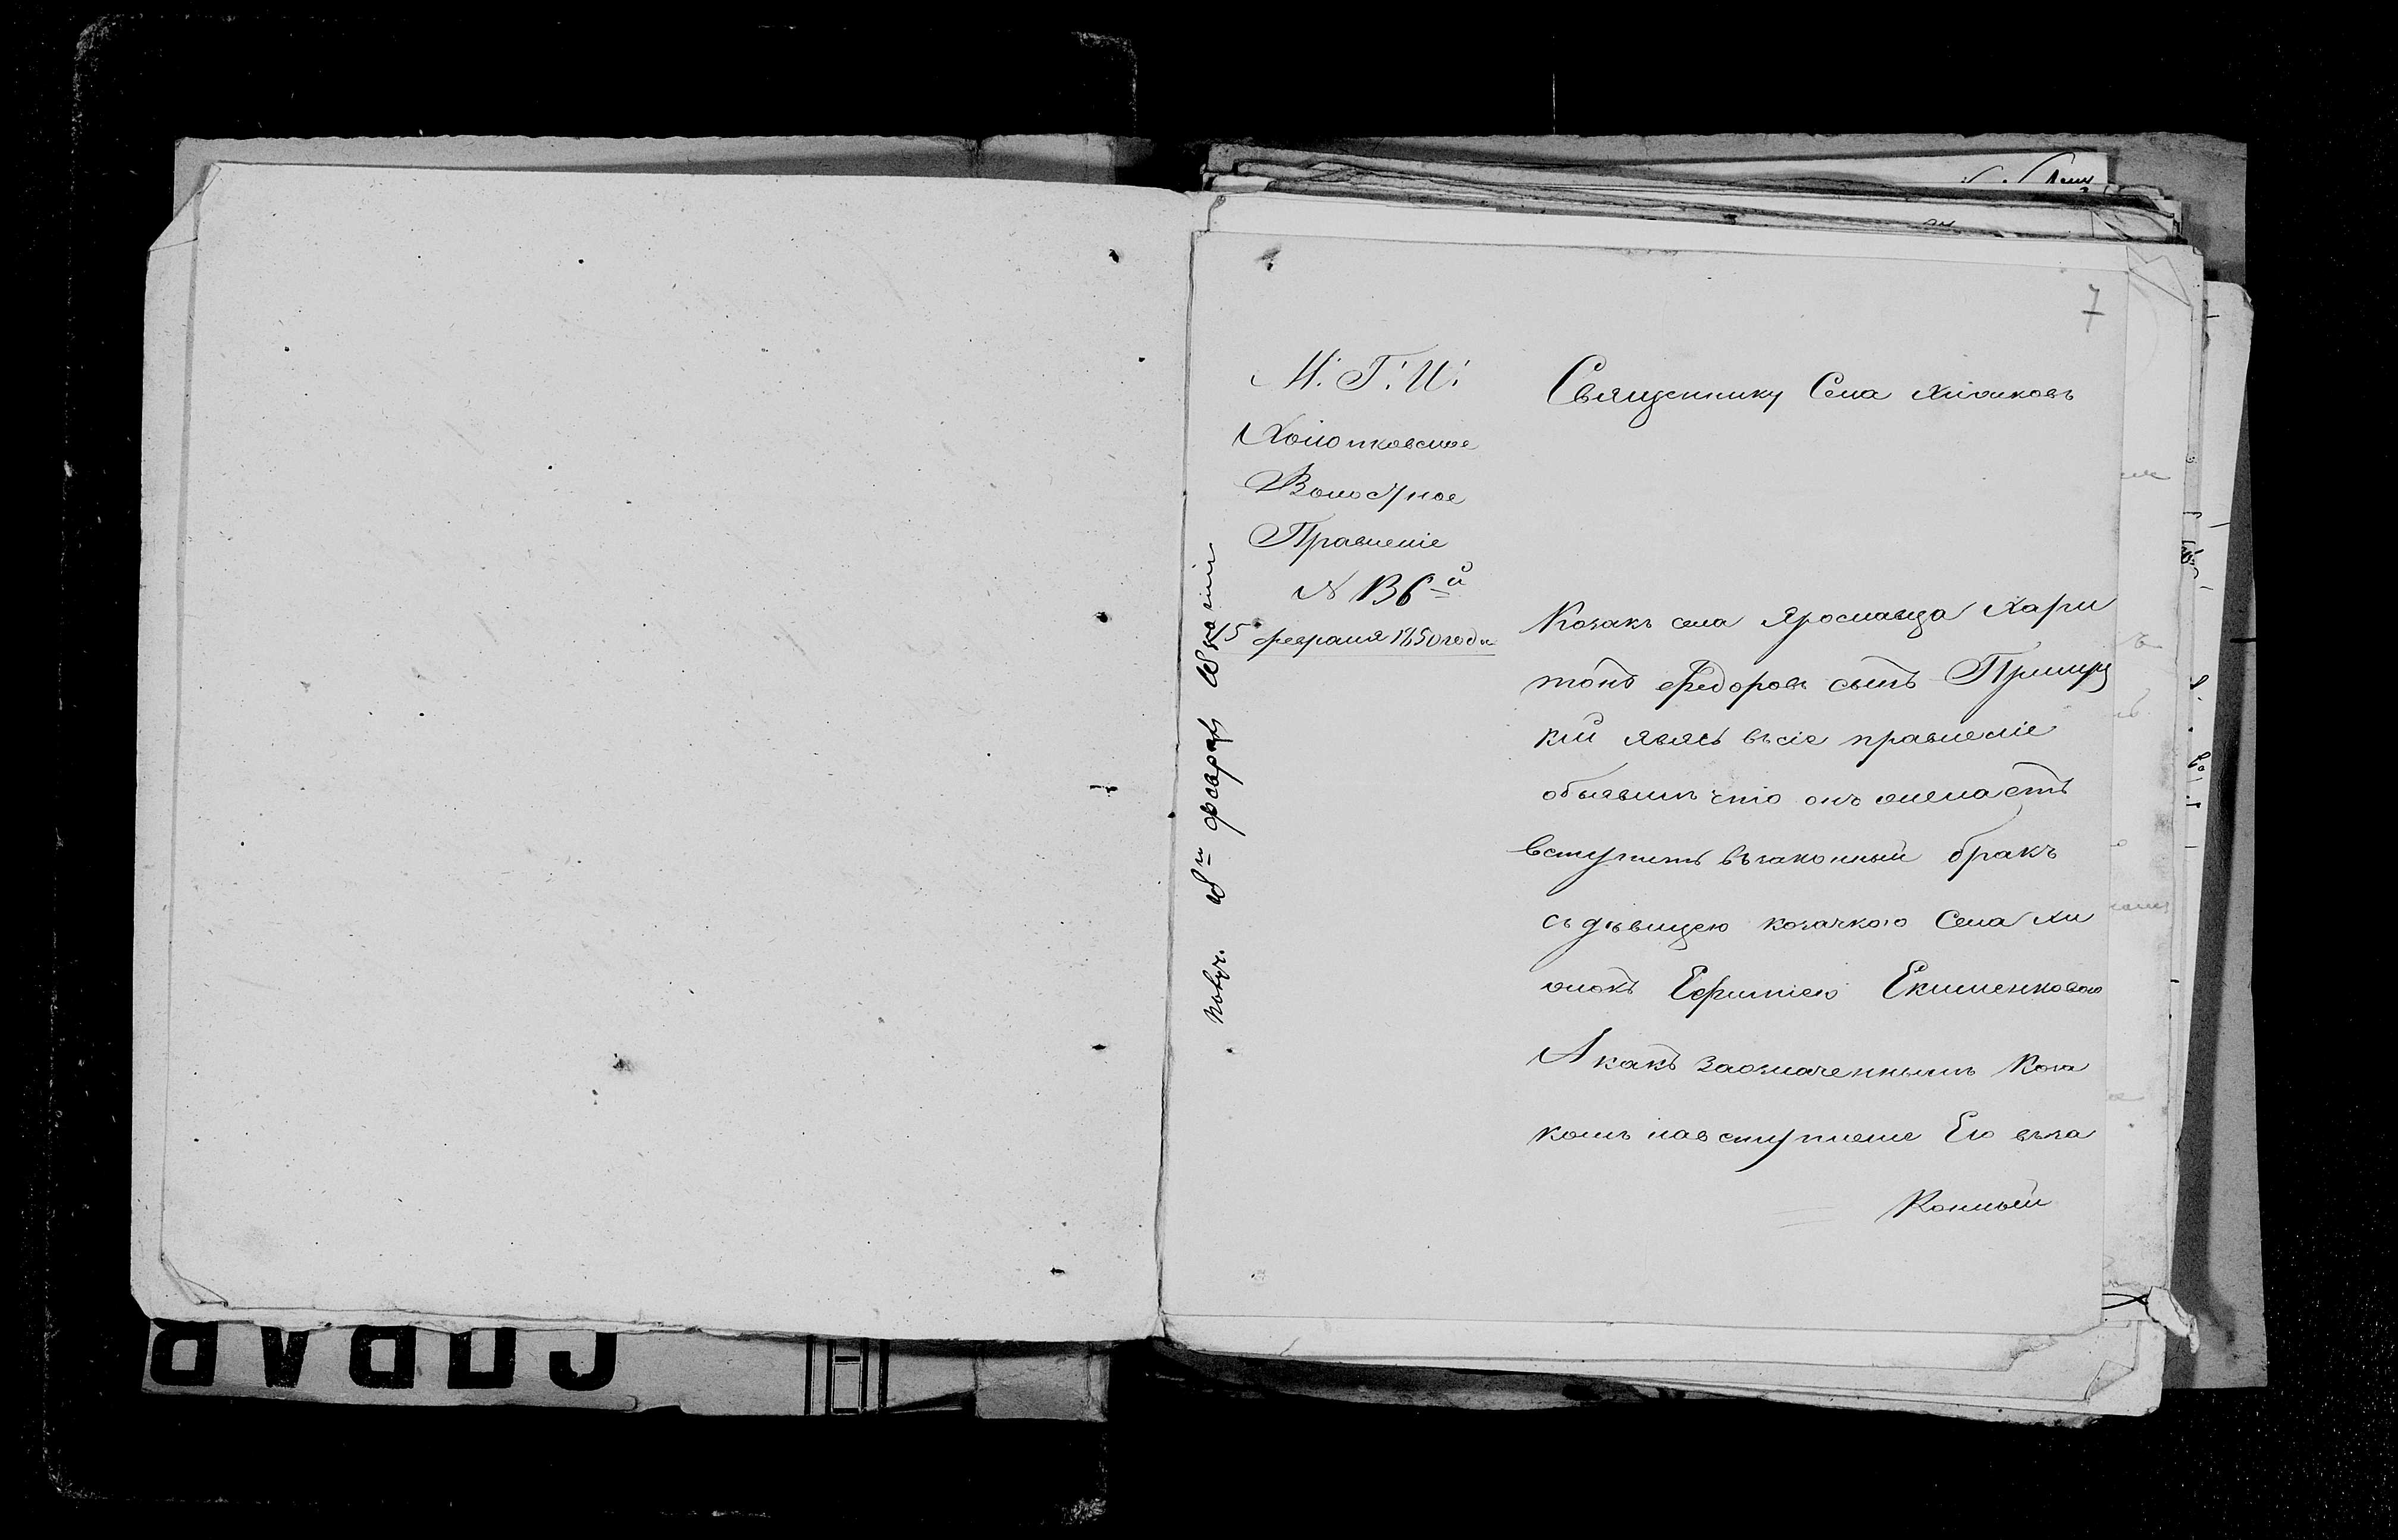 7
М. Г. И.
Холопковское
Волостное
Правленіе
15 февраля 1850 года
Священнику Села
Козакъ села Ярославца Хари
тонъ Федоровъ сынъ
кій явясь въ сіе правленіе
объявилъ что онъ желаетъ
вступить въ законный бракъ
съ дѣвицею козачкою Села
Екименковою
А какъ заозначеннымъ Коза
комъ на вступленіе Его въ за
Конный